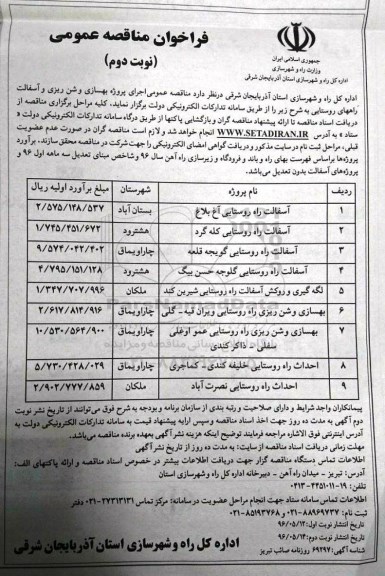 جمهوری اسلامی ایران
وزارت راه و شهرسازی
اداره کل راه و شهرسازی استان آذربایجان شرقی
فراخوان مناقصه عمومی
(نوبت دوم)
اداره کل راه و شهرسازی استان آذربایجان شرقی درنظر دارد مناقصه عمومی اجرای پروژه بهسازی و شن ریزی و آسفالت
راههای روستایی به شرح زیر را از طریق سامانه تدارکات الکترونیکی دولت برگزار نماید. کلیه مراحل برگزاری مناقصه از
دریافت اسناد مناقصه تا ارائه پیشنهاد مناقصه گران و بازگشایی پاکتها از طریق درگاه سامانه تدارکات الکترونیکی دولت «
ستاد» به آدرس WWW.SETADIRAN.IR انجام خواهد شد و لازم است مناقصه گران در صورت عدم عضویت
قبلی، مراحل ثبت نام در سایت مذکور و دریافت گواهی امضای الکترونیکی را جهت شرکت در مناقصه محقق سازند. برآورد
پروژه‌ها براساس فهرست بهای راه و باند و فرودگاه و زیرسازی راه آهن سال ۹۶ و شاخص مبنای تعدیل سه ماهه اول ۹۶ و
پروژه‌های آسفالت بدون تعدیل می‌باشد.
ردیف نام پروژه شهرستان مبلغ برآورد اولیه ریال
۱ آسفالت راه روستایی آغ بلاغ بستان آباد ۲/۵۷۵/۱۴۸/۵۳۷
۲ آسفالت راه روستایی کله گرد هشترود ۱/۷۴۵/۴۵۱/۶۷۲
۳ آسفالت راه روستایی گویجه قلعه چاراویماق ۹/۵۷۴/۰۴۲/۴۰۲
۴ آسفالت راه روستایی گلوجه حسن بیگ هشترود ۴/۷۹۵/۱۵۱/۱۲۸
۵ لکه گیری و روکش آسفالت راه روستایی شیرین کند ملکان ۱/۳۴۷/۷۰۷/۹۹۶
۶ بهسازی وشن ریزی راه روستایی ویران قیه - گلی چاراویماق ۲/۶۱۷/۸۱۴/۹۱۶
۷ بهسازی و شن ریزی راه روستایی عمو اوغلی چاراویماق ۱۰/۵۳۰/۵۶۴/۹۰۰
سفلی - ذاکر کندی
۸ احداث راه روستایی خلیفه کندی - کماجری چاراویماق ۵/۷۳۰/۴۲۸/۰۲۹
۹ احداث راه روستایی نصرت آباد ملکان ۲/۹۰۲/۷۷۷/۸۵۹
پیمانکاران واجد شرایط و دارای صلاحیت و رتبه بندی از سازمان برنامه و بودجه به شرح فوق می‌توانند از تاریخ نشر نوبت
دوم آگهی به مدت ده روز جهت اخذ اسناد مناقصه و سپس ارایه پیشنهاد قیمت به سامانه تدارکات الکترونیکی دولت به
آدرس اینترنتی فوق الاشاره مراجعه فرمایند توضیح اینکه هزینه نشر آگهی بعهده برنده مناقصه می‌باشد.
مهلت زمانی دریافت اسناد مناقصه از سایت: به مدت ده روز از تاریخ نشر آگهی
اطلاعات تماس دستگاه مناقصه گزار جهت دریافت اطلاعات بیشتر در خصوص اسناد مناقصه و ارائه پاکتهای الف:
آدرس: تبریز - میدان راه آهن - دبیرخانه اداره کل راه و شهرسازی استان
تلفن: ۱۹-۴۴۵۱۰۱۱-۰۴۱۳
اطلاعات تماس سامانه ستاد جهت انجام مراحل عضویت در سامانه: مرکز تماس ۲۷۳۱۳۱۳۱-۰۲۱ دفتر
ثبت نام: ۸۸۹۶۹۷۳۷-۰۲۱ و ۸۵۱۹۳۷۶۸-۰۲۱
تاریخ انتشار نوبت اول: ۹۶/۰۵/۱۲
تاریخ انتشار نوبت دوم: ۹۶/۰۵/۱۴
شناسه آگهی: ۶۹۲۹۷ روزنامه صائب تبریز
اداره کل راه و شهرسازی استان آذربایجان شرقی